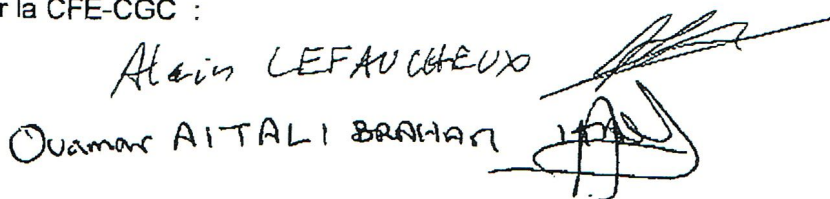 r la CFE-CGC :
Alain LEFAUCHEUX
Ouamar AITALI BRAHAM